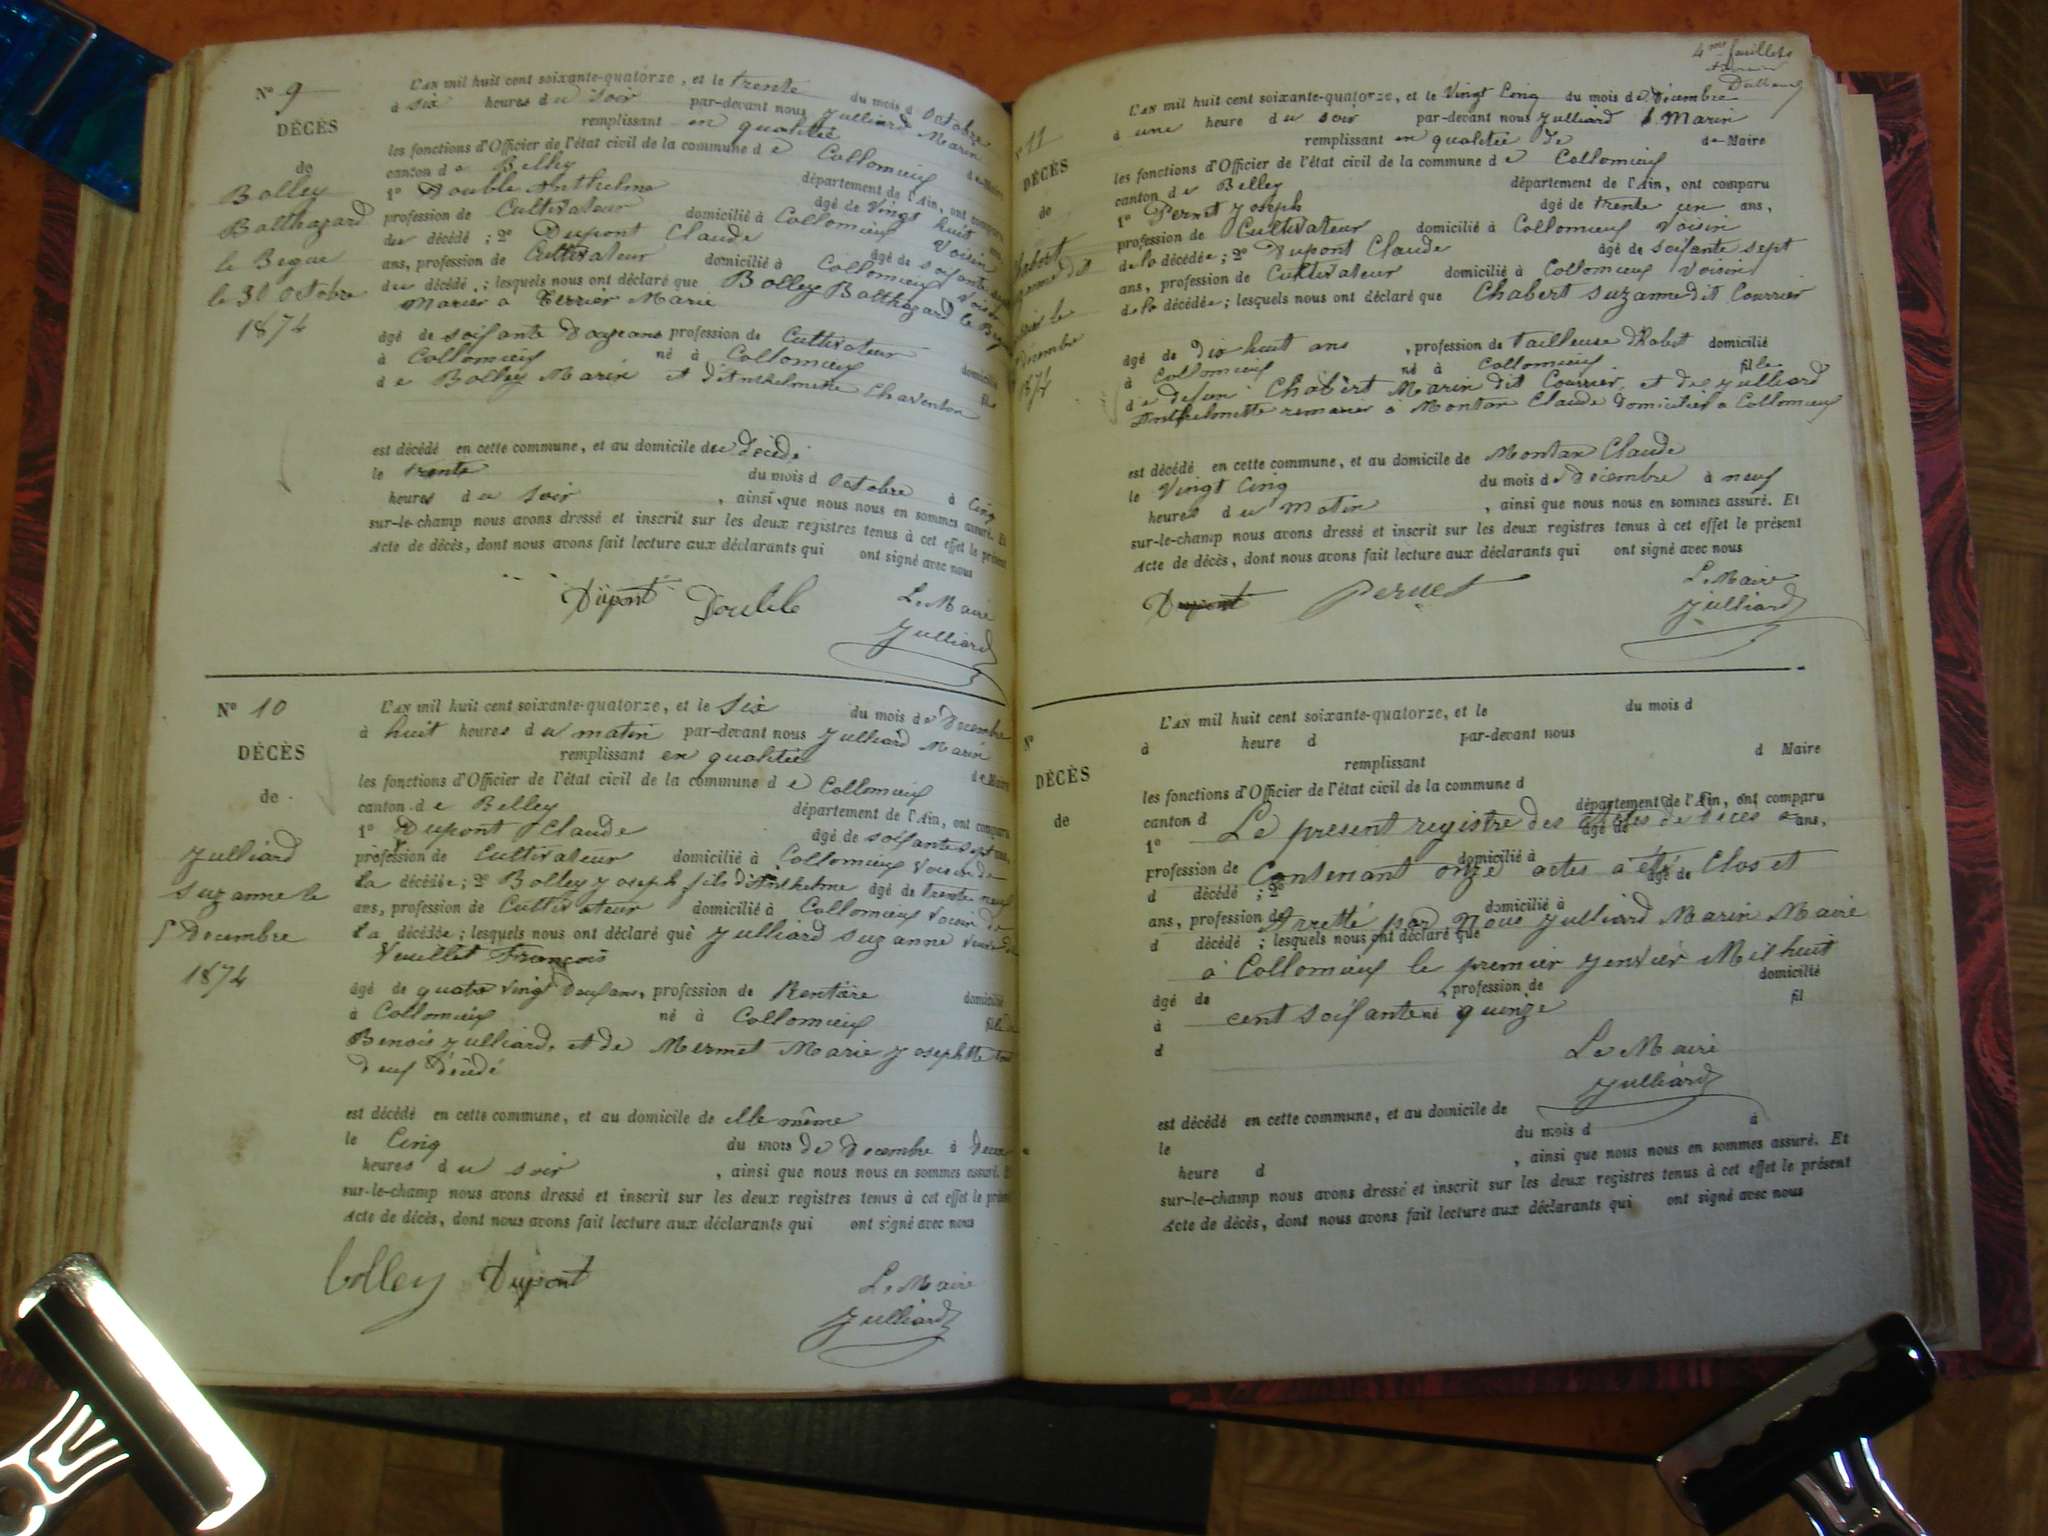 N° 9
DÉCÈS
de
Bolley
Balthazard
le Begue
le 30 Octobre
1874
L'AN mil huit cent soixante-quatorze, et le trente du mois d Octobre
à six heures du soir par-devant nous Julliard Marin
remplissant en qualitée de Maire
les fonctions d'Officier de l'état civil de la commune de Collomieux
canton de Belley département de l'Ain, ont comparu
1° Double Anthelme âgé de Vingt huit ans,
profession de Cultivateur domicilié à Collomieux Voisin
du décédé ; 2° Dupont Claude âgé de soisante
ans, profession de Cultivateur domicilié à Collomieux Voisin
du décédé ; lesquels nous ont déclaré que Bolley Balthazard le Begue
Marier a Terrier Marie
âgé de soisante Douze ans, profession de Cultivateur domicilié
à Collomieux né à Collomieux fils
de Bolley Marin et d'Anthelmette Charenton
est décédé en cette commune, et au domicile du décédé
le trente du mois d Octobre à Cinq
heures du soir , ainsi que nous nous en sommes assuré. Et
sur-le-champ nous avons dressé et inscrit sur les deux registres tenus à cet effet le présent
Acte de décès, dont nous avons fait lecture aux déclarants qui ont signé avec nous
Dupont Double Le Maire
Julliard
N° 10
DÉCÈS
de
Julliard
Suzanne le
5 Decembre
1874
L'AN mil huit cent soixante-quatorze, et le Six du mois de Decembre
à huit heures du matin par-devant nous Julliard Marin
remplissant en qualitée de Maire
les fonctions d'Officier de l'état civil de la commune de Collomieux
canton de Belley département de l'Ain, ont comparu
1° Dupont Claude âgé de soisante sept ans,
profession de Cultivateur domicilié à Collomieux Voisin de
la décédée ; 2° Bolley Joseph fils d'Anthelme âgé de trente neuf
ans, profession de Cultivateur domicilié à Collomieux Voisin de
la décédée ; lesquels nous ont déclaré que Julliard Suzanne veuve de
Vuillet François
âgé de quatre Vingt Deux ans, profession de Rentière domicilié
à Collomieux né à Collomieux fille de
Benois Julliard, et de Mermet Marie Josephtte tout
deux Décédé
est décédé en cette commune, et au domicile de elle même
le Cinq du mois de Decembre à deux
heures du soir , ainsi que nous nous en sommes assuré. Et
sur-le-champ nous avons dressé et inscrit sur les deux registres tenus à cet effet le présent
Acte de décès, dont nous avons fait lecture aux déclarants qui ont signé avec nous
bolley Dupont Le Maire
Julliard
4me feuillets
11
DÉCÈS
de
Chabert
le
décembre
1874
L'AN mil huit cent soixante-quatorze, et le Vingt Cinq du mois de Décembre
à une heure du soir par-devant nous Julliard Marin
remplissant en qualitée de de Maire
les fonctions d'Officier de l'état civil de la commune de Collomieux
canton de Belley département de l'Ain, ont comparu
1° Pernet Joseph âgé de trente un ans,
profession de Cultivateur domicilié à Collomieux Voisin
de la décédée ; 2° Dupont Claude âgé de soisante sept
ans, profession de Cultivateur domicilié à Collomieux Voisin
de la décédée ; lesquels nous ont déclaré que Chabert Suzanne dit Courrier
âgé de dix huit ans , profession de tailleuse d'Habit domicilié
à Collomieux né à Collomieux fille
de defun Chabert Marin dit Courrier, et de Julliard
Anthelmette remarier à Montan Claude domicilier a Collomieux
est décédé en cette commune, et au domicile de Montan Claude
le Vingt Cinq du mois de Décembre à neuf
heures du matin , ainsi que nous nous en sommes assuré. Et
sur-le-champ nous avons dressé et inscrit sur les deux registres tenus à cet effet le présent
Acte de décès, dont nous avons fait lecture aux déclarants qui ont signé avec nous
Dupont Pernet Le Maire
Julliard
N°
DÉCÈS
de
L'AN mil huit cent soixante-quatorze, et le du mois d
à heure d par-devant nous
remplissant d Maire
les fonctions d'Officier de l'état civil de la commune d
canton d département de l'Ain, ont comparu
1° Le present registre des Actes de Déces âgé de ans,
profession de domicilié à
d décédé ; 2° Contenant onze actes a été Clos et âgé de
ans, profession de domicilié à
Arretté par Nous Julliard Marin Maire
d décédé ; lesquels nous ont déclaré que
à Collomieux le premier Jenvier Mil huit
âgé de , profession de domicilié
à cent soisante né quinze fil
d
Le Maire
Julliard
est décédé en cette commune, et au domicile de
le du mois d à
heure d , ainsi que nous nous en sommes assuré. Et
sur-le-champ nous avons dressé et inscrit sur les deux registres tenus à cet effet le présent
Acte de décès, dont nous avons fait lecture aux déclarants qui ont signé avec nous